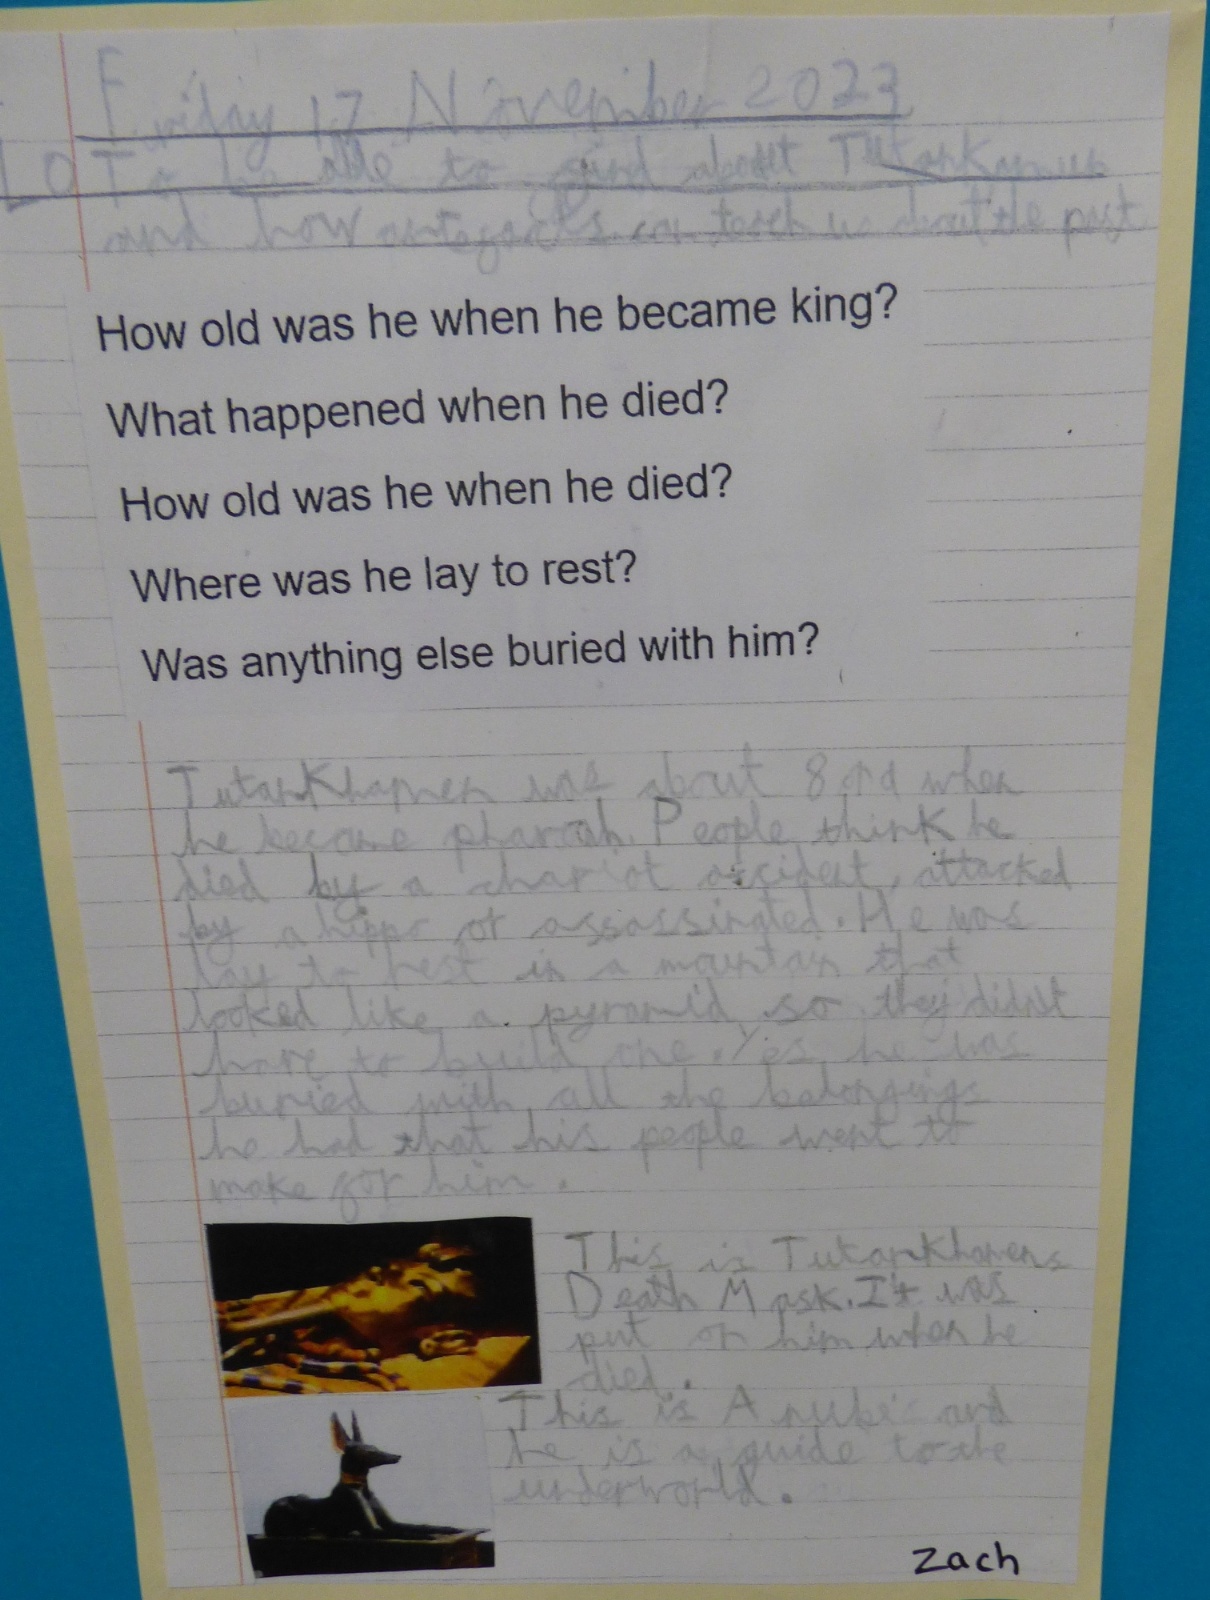 Friday 17 November 2023
LO To be able to find about Tutankamun
and how artefacts can teach us about the past
How old was he when he became king?
What happened when he died?
How old was he when he died?
Where was he lay to rest?
Was anything else buried with him?
Tutankhamen was about 8 when
he became pharoah. People think he
died by a chariot accident, attacked
by a hippo or assassinated. He was
lay to rest in a mountain that
looked like a pyramid so they didn't
have to build one. Yes he was
buried with all the belongings
he had that his people went to
make for him.
This is Tutankhamens
Death Mask. It was
put on him when he
died.
This is Anubi and
he is a guide to the
underworld.
Zach